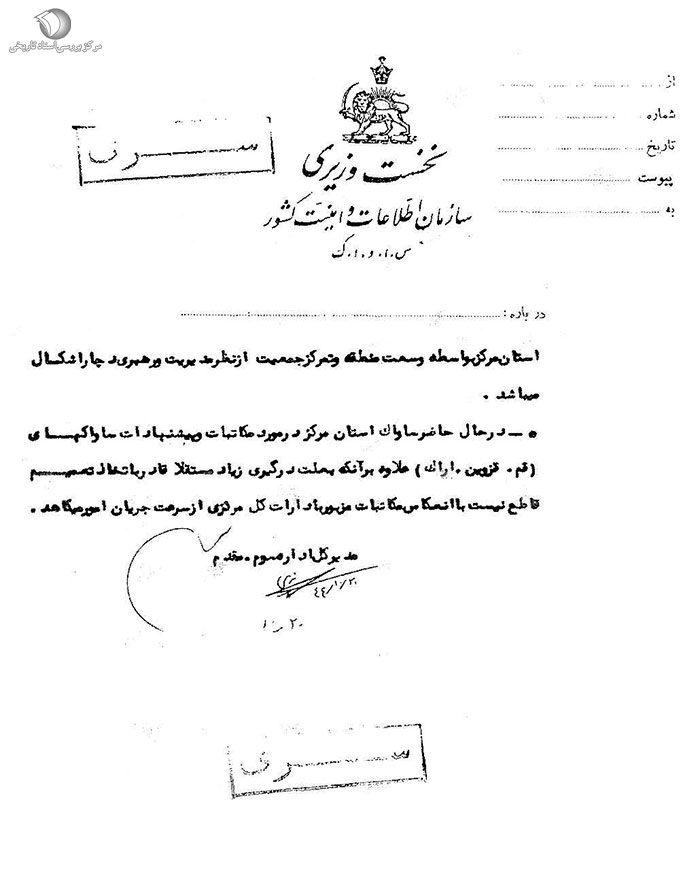 مرکز بررسی اسناد تاریخی
از
شماره
تاریخ
پیوست
به
سری
نخست وزیری
سازمان اطلاعات و امنیت کشور
س.ا.و.ا.ک
درباره:
استان مرکز بواسطه وسعت منطقه و تمرکز جمعیت از نظر مدیریت و رهبری دچار اشکال
میباشد .
۵ــ در حال حاضر ساواک استان مرکز در مورد مکاتبات و پیشنهادات ساواکهای
(قم . قزوین . اراک) علاوه بر آنکه بعلت درگیری زیاد مستقلا قادر باتخاذ تصمیم
قاطع نیست با انعکاس مکاتبات مزبور بادارات کل مرکزی از سرعت جریان امور میکاهد .
مدیرکل اداره سوم . مقدم
۴۴/۱/۲۰
سری